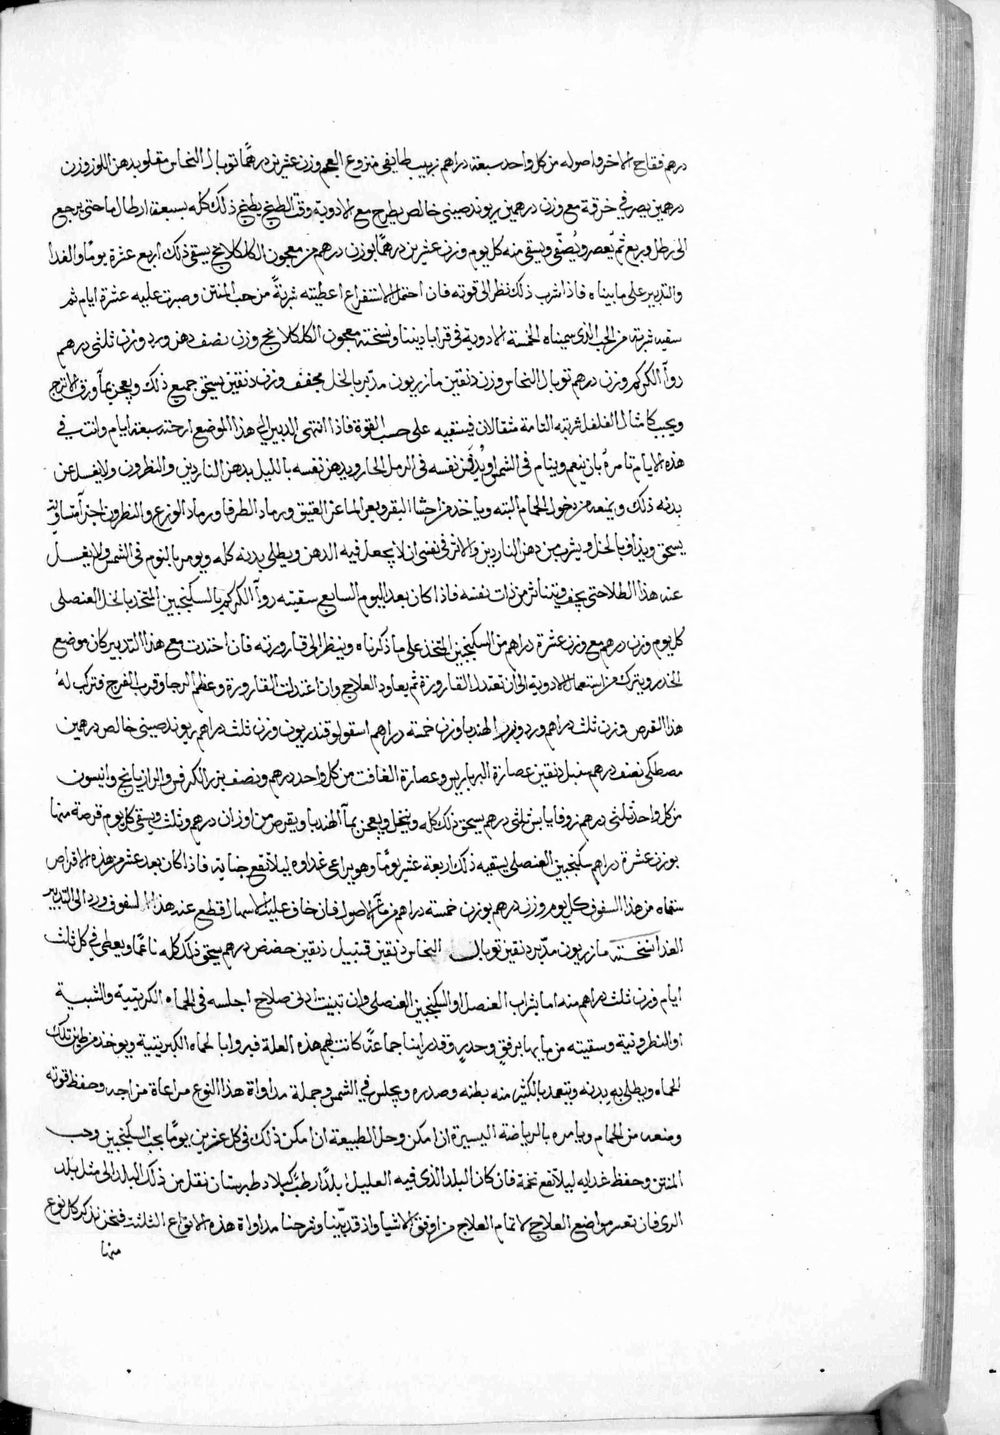 درهم فقاح الاخر واصوله من كل واحد سبعة دراهم زبيب طايفي منزوع العجم وزن عشرين درهمًا توبال النحاس مقلو بدهن اللوز وزن
درهمين يصر في خرقة مع وزن درهمين ريوند صيني خالص يطرح مع الادوية وقت الطبخ يطبخ ذلك كله بسبعة ارطال ما حتى يرجع
الى رطل وربع ثم يعصر ويُصفّى ويسقى منه كل يوم وزن عشرين درهمًا بوزن درهم من معجون الكلكلانج يسقى ذلك اربع عشرة يومًا والغدا
والتدبير على ما بيناه فاذا شرب ذلك نظر الى قوته فان احتمل الاستفراغ اعطيته شربةً من حب المنتن وصبرت عليه عشرة ايام ثم
سقيه شربة من الحب الذي سميناه الخمسة الادوية في قرابادينا ونسخته معجون الكلكلانج وزن نصف دهن ورد وزن ثلثي درهم
روا الكركم وزن درهم توبال النحاس وزن دنقين مازريون مدبّر بالخل مجفف وزن دنقين يسحق جميع ذلك ويعجن بمآ ورق الاترج
ويحبب كامثال الفلفل شربته التامة مثقالان فيسقيه على حسب القوة فاذا انتهى التدبير الى هذا الموضع ارحته سبعة ايام وانت في
هذه الايام تامرهُ بان ينعم وينام في الشمس او يُدفن نفسه في الرمل الحار ويدهن نفسه بالليل بدهن الناردين والنطرون ولا يغسل عن
بدنه ذلك ويمنعه من دخول الحمام البتة وياخذ من اخثا البقر وبعر الماعز العتيق ورماد الطرفا ورماد الوزغ والنطرون اجزآ متساوية
يسحق ويذاف بالخل ويشرب من دهن الناردين والاثر في نفسى ان لا يجعل فيه الدهن ويطلى بدنه كله ويومر بالنوم في الشمس ولا يغسل
عنه هذا الطلا حتى يجف ويتناثر من ذات نفسه فاذا كان بعد اليوم السابع سقيته روآ الكركم بالسكنجبين المتخذ بالخل العنصلى
كل يوم وزن درهم مع وزن عشرة دراهم من السكنجبين المتخذ على ما ذكرناه وينظر الى قارورته فان احتدت مع هذا التدبير كان موضع
الحذر ويترك من استعمال الادوية الى ان تعتدل القارورة ثم يعاود العلاج وان اعتدلت القارورة وعظم الرجا وقرب الفرج فتركب لهُ
هذا القرص وزن ثلث دراهم ورد وبزر الهندبا وزن خمسة دراهم اسقولوقندريون وزن ثلث دراهم ريوند صيني خالص درهمين
مصطكى نصف درهم سنبل دنقين عصارة البرباريس وعصارة الغافت من كل واحد درهم ونصف بزر الكرفس والرازيانج وانيسون
من كل واحد ثلثى درهم زوفا يابس ثلثى درهم يسحق ذلك كله وينخل ويعجن بمآ الهندبا ويقرص من اوزان درهم وثلث ويسقى كل يوم قرصة منها
بوزن عشرة دراهم سكنجبين العنصلى يسقيه ذلك اربعة عشر يومًا وهو يراعى غداوه ليلا تقع جناية فاذا كان بعد عشر من هذه الاقراص
سقاه من هذا السفوف كل يوم وزن درهم بوزن خمسة دراهم من مآ الاصول فان خاف عليك الاسهال قطع عنه هذا السفوف ورد الى التدبير
الغذا نسخته مازريون مدبّر دنقين توبال النحاس دنقين قنبيل دنقين حضض درهم يسحق ذلك كله ناعمًا ويعطى في كل ثلث
ايام وزن ثلث دراهم منه اما بشراب العنصل او السكنجبين العنصلى وان تبينت ادنى صلاح اجلسه في الحماه الكبريتية والشبية
او النطرونية وسقيته من مايها برفقٍ وحدرٍ وقد راينا جماعةً كانت لهم هذه العلة فبروا بالحماه الكبريتية ويوخذ من طين تلك
الحماه ويطلى به بدنه ويتعمد بالكثير منه بطنه وصدره ويجلس في الشمس وجملة مداواة هذا النوع مراعاة مزاجه وحفظ قوته
ومنعه من الحمام ويامره بالرياضة اليسيرة ان امكن وحل الطبيعة ان امكن ذلك في كل عشرين يومًا بحب السكبينج وحب
المنتن وحفظ غدايه ليلا تقع تخمة فان كان البلد الذي فيه العليل بلدًا رطبًا كبلاد طبرستان نقل من ذلك البلد الى مثل بلد
الرى فان تغير مواضع العلاج لاتمام العلاج من اوفق الاشيا واذ قد بيّنا وشرحنا مداواة هذه الانواع الثلثة فنحن نذكر كل نوع
منها